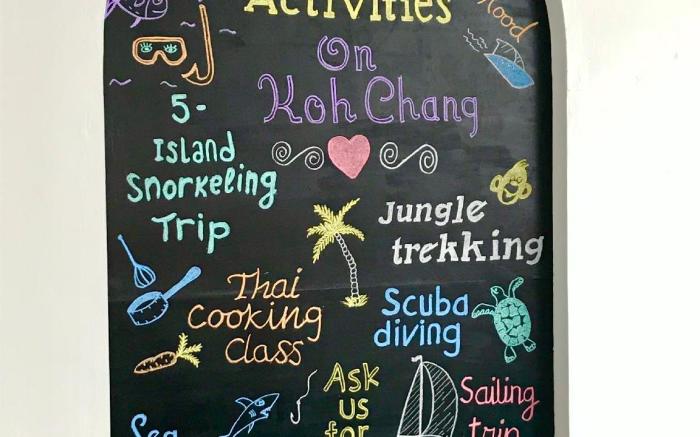 Activities
On
Koh Chang
5-
Island
Snorkeling
Trip
Jungle
trekking
Thai
Cooking
Class
Scuba
diving
Ask
us
for
Sailing
trip
Sea